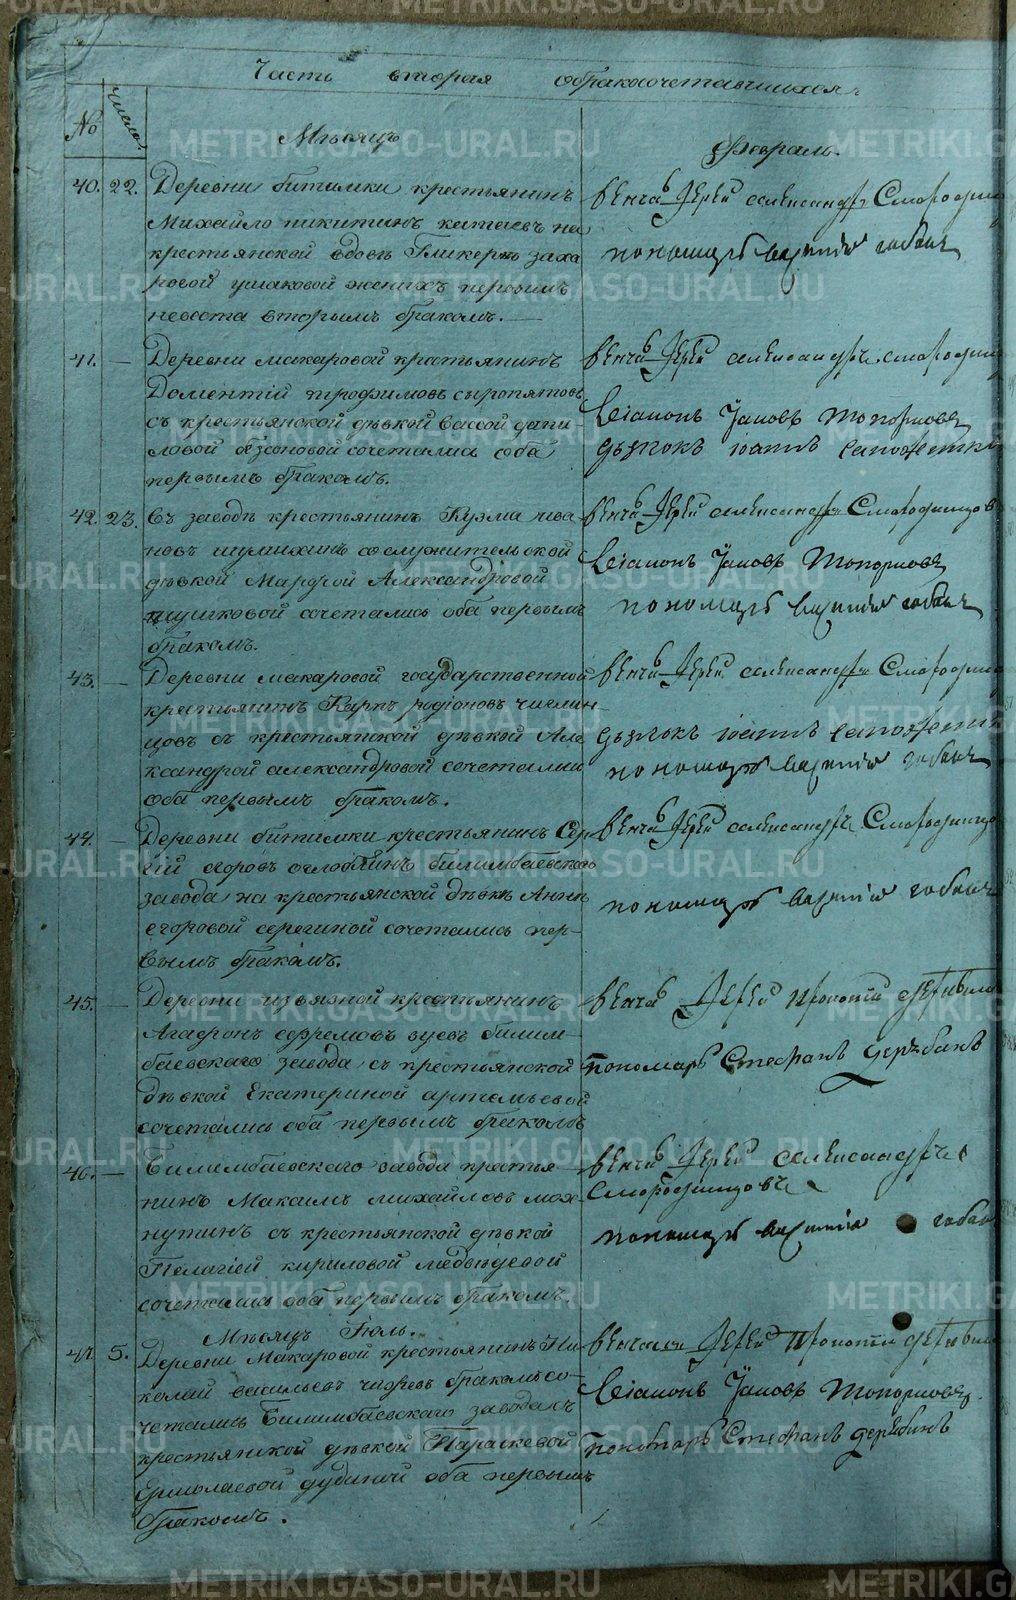 Часть вторая обракосочетавшихся
№ число
Мѣсяцъ Февраль.
40. 22. Деревни битимки крестьянинъ
Михайло никитинъ катаевъ на
крестьянской вдовѣ Гликерьѣ заха
ровой ушаковой женихъ первымъ
невеста вторымъ бракомъ.
Венча Іерей александръ Смородин
пономарь
41. — Деревни макаровой крестьянинъ
Доментій трофимовъ сыропятовъ
съ крестьянской дѣвкой Вассой дани
ловой безсоновой сочетались оба
первымъ бракомъ.
Венча Іерей александръ смородин
Діаконъ Іаковъ Топорковъ
дьячокъ іоаннъ сапожник
42. 23. Въ заводѣ крестьянинъ Кузма ива
новъ шулинхинъ со служительской
дѣвкой Марфой Александровой
пушковой сочетались оба первымъ
бракомъ.
Венча Іерей александръ Смородинцов
Діаконъ Іаковъ Топорковъ
пономарь
43. — Деревни макаровой государственной
крестьянинъ Карпъ родіоновъ числин
цовъ съ крестьянской дѣвкой Але
ксандрой александровой сочетались
оба первымъ бракомъ.
Венча Іерей александръ Смородин
дьячокъ іоаннъ сапожник
пономарь
44. — Деревни битимки крестьянинъ Сер
гій егоровъ билимбаевскаго
завода на крестьянской дѣвкѣ Аннѣ
егоровой серегиной сочетались пер-
вымъ бракомъ.
Венча Іерей александръ Смородинцо
пономарь
45. — Деревни крестьянинъ
Агафонъ ефремовъ зуевъ билим-
баевскаго завода съ крестьянской
дѣвкой Екатериной артемьевой
сочетались оба первымъ бракомъ
Венча Іерей
пономарь Стефанъ дерябинъ
46. — Билимбаевскаго завода крестья-
нинъ Максимъ михайловъ мох
нуткинъ съ крестьянской дѣвкой
Пелагіей кириловой медвѣдевой
сочетались оба первымъ бракомъ.
Венча Іерей александръ
Смородинцовъ
пономарь
Мѣсяцъ Іюль.
47. 5. Деревни Макаровой крестьянинъ Ни
колай васильевъ бракомъ со-
четались Билимбаевскаго завода съ
крестьянской дѣвкой Параскевой
Ермолаевой дудиной оба первымъ
бракомъ.
Венчали Іерей
Діаконъ Іаковъ Топорковъ.
пономарь Стефанъ дерябинъ
METRIKI.GASO-URAL.RU